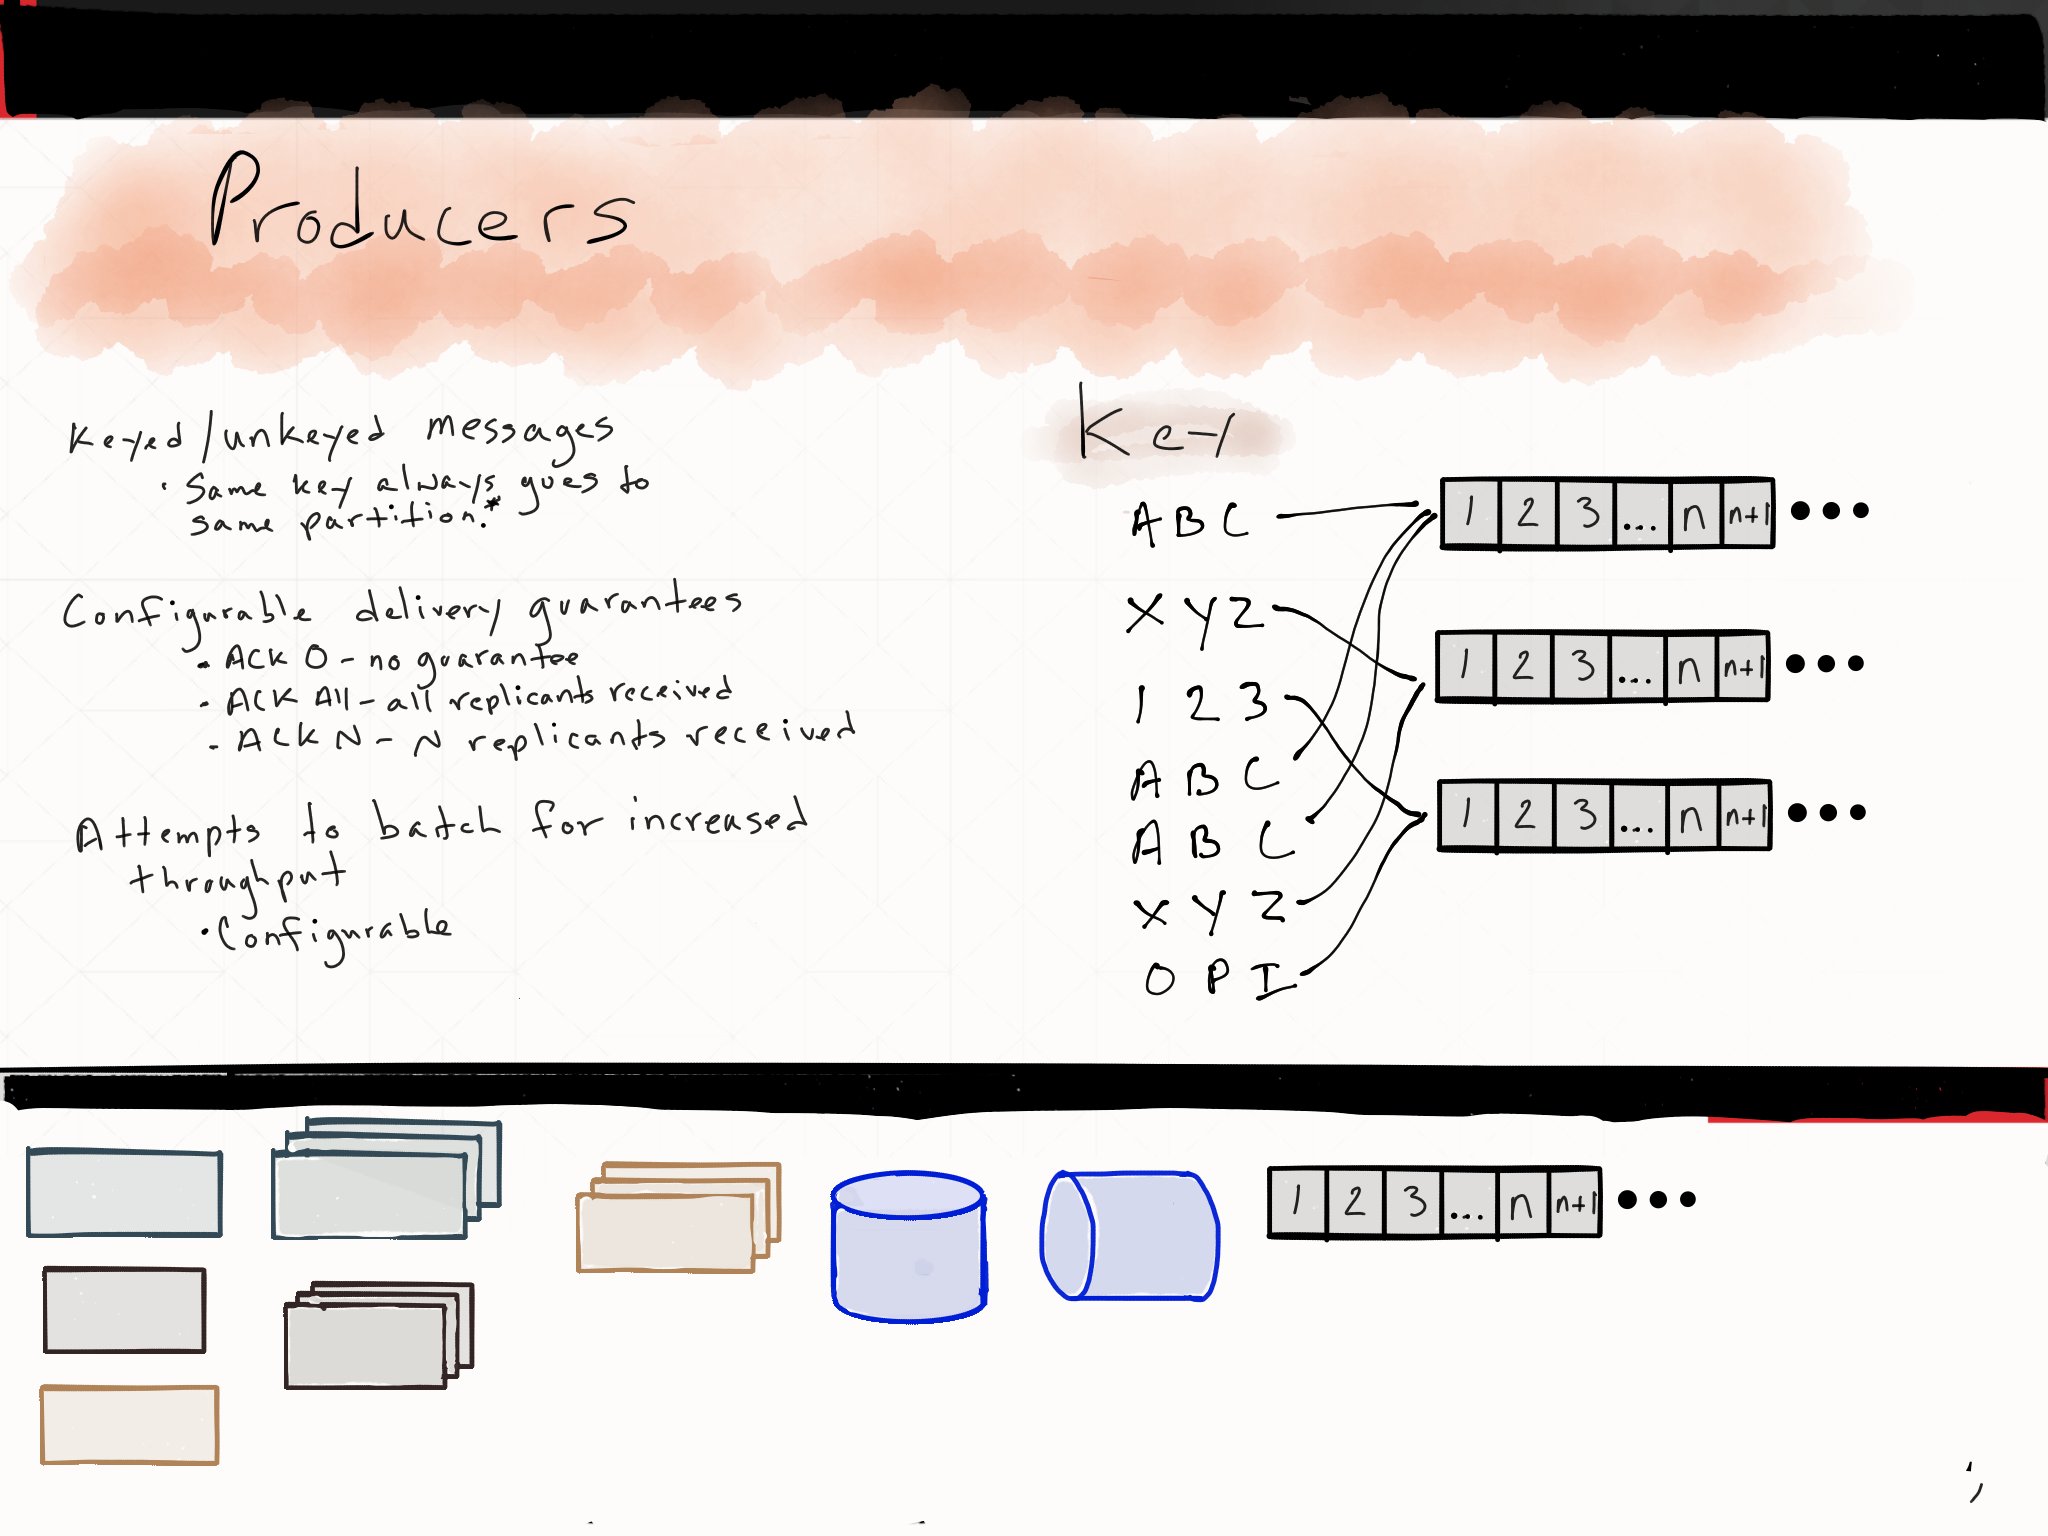 Producers
Keyed/unkeyed messages
· Same key always goes to
same partition.*
Configurable delivery guarantees
- ACK 0 - no guarantee
- ACK All - all replicants received
- ACK N - N replicants received
Attempts to batch for increased
throughput
· Configurable
Key
ABC
XYZ
123
ABC
ABC
XYZ
OPI
1 2 3 ... n n+1 •••
1 2 3 ... n n+1 •••
1 2 3 ... n n+1 •••
1 2 3 ... n n+1 •••